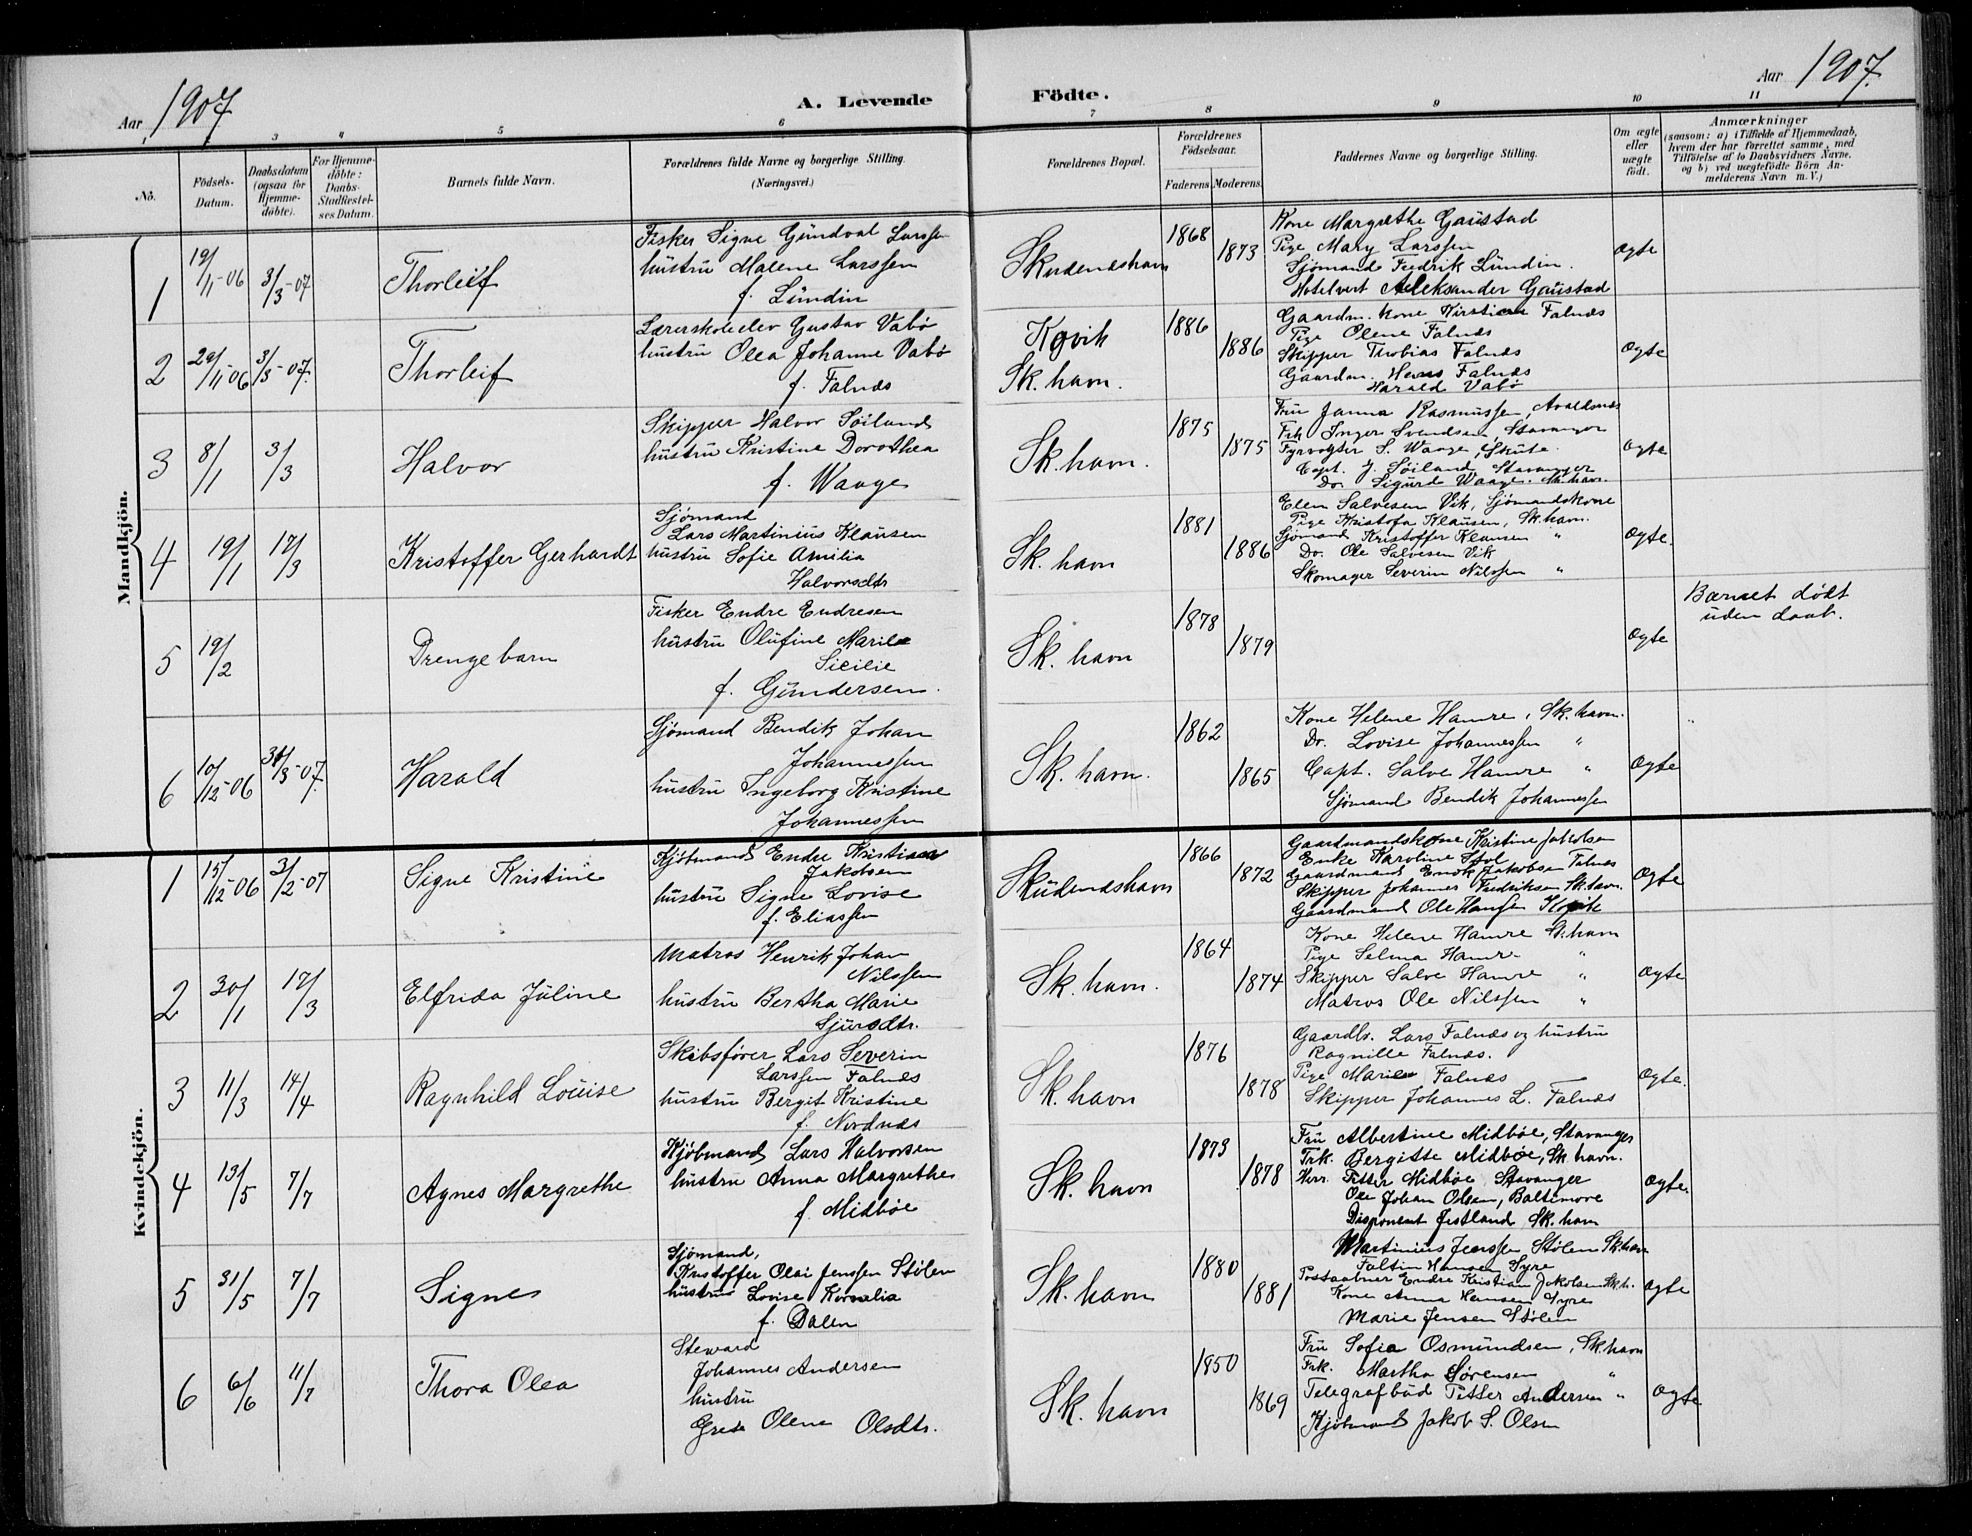 Aar 1907
A. Levende Födte.
Aar 1907.
1 3 4 5 6 7 8 9 10 11
No.
Födsels-Datum.
Daabsdatum (ogsaa for Hjemme-döbte).
For Hjemme-döbte: Daabs-Stadfæstel-ses Datum.
Barnets fulde Navn.
Forældrenes fulde Navne og borgerlige Stilling.
(Næringsvei.)
Forældrenes Bopæl.
Forældrenes Födselsaar.
Faderens. Moderens.
Faddernes Navne og borgerlige Stilling.
Om ægte eller uægte födt.
Anmærkninger
(saasom: a) i Tilfælde af Hjemmedaab,
hvem der har forrettet samme, med
Tilföielse af to Daabsvidners Navne,
og b) ved uægtefödte Börn An-
melderens Navn m. V.)
Mandkjön.
1 19/11-06 3/3-07 Thorleif
Fisker Signe Gundvat Larssen
hustru Malene Larssen
f. Lundin
Skudeneshavn 1868 1873
Kone Margrethe Gaustad
Pige Mary Larssen
Sjømand Fredrik Lundin.
Hotelvert Aleksander Gaustad
ægte
2 29/11-06 3/3-07. Thorleif
Lærerskoleelev Gustav Vabø
hustru Olea Johanne Vabø
f. Falnes
Kovik
Sk. havn. 1886 1886
Gaardm. kone Kirstine Falnes
Pige Olene Falnes
Skipper Thobias Falnes
Gaardm. Hans Falnes
Harald Vabø
ægte
3 8/1 3/3 Halvor
Skipper Halvor Søiland
hustru Kristine Dorothea
f. Waage
Sk. havn. 1875 1875
Fru Janna Rasmussen, Avaldsnes
Frk Inger Svendsen, Stavanger
Fyrvogter S. Waage, Skute.
Capt. J. Søiland Stavanger
Do. Sigurd Waage. Sk. havn.
ægte
4 19/1 17/3 Kristoffer Gerhardt
Sjømand
Lars Martinius Klausen
hustru Sofie Amilia
Halvorsdtr
Sk. havn 1881 1886
Elen Salvesen Vik, Sjømandskone
Pige Kristofa Klausen, Sk. havn.
Sjømand Kristoffer Klausen "
Do. Ole Salvesen Vik
Skomager Severin Nilssen "
ægte.
5 19/2 Drengebarn
Fisker Endre Endresen
hustru Olufine Marile
Sicilie
f. Gundersen.
Sk. havn 1878 1879
ægte
Barnet dødt
uden daab.
6 10/12-06 31/3-07. Harald
Sjømand Bendik Johan
Johannessen
hustru Ingeborg Kristine
Johannessen
Sk. havn. 1862 1865
Kone Helene Hamre, Sk. havn.
Do. Lovise Johannessen "
Capt. Salve Hamre "
Sjømand Bendik Johannessen
ægte
Kvindekjön.
1 15/12-06 3/2-07 Signe Kristine
Kjøbmand Endre Kristian
Jakobsen
hustru Signe Lovise
f. Eliassen
Skudeneshavn 1866 1872
Gaardmandskone Kristine Jakobsen
Enke Karoline Stol
Gaardmand Enok Jakobsen Falnes
Skipper Johannes Fredriksen Sk. havn.
Gaardmand Ole Hansen
ægte
2 30/1 17/3 Elfrida Juline
Matros Henrik Johan
Nilssen
hustru Bertha Marie
Sjursdtr.
Sk. havn. 1864 1874
Kone Helene Hamre Sk. havn
Pige Selma Hamre "
Skipper Salve Hamre "
Matros Ole Nilssen "
ægte
3 11/3 14/4 Ragnhild Louise
Skibsfører Lars Severin
Larssen Falnes
hustru Bergit Kristine
f. Nordnes
Sk. havn 1876 1878
Gaardbr. Lars Falnes og hustru
Ragnille Falnes.
Pige Marie Falnes
Skipper Johannes L. Falnes
ægte.
4 13/5 7/7 Agnes Margrethe
Kjøbmand Lars Halvorsen
hustru Anna Margrethe
f. Midbøe
Sk. havn 1873 1878
Fru Albertine Midbøe, Stavanger
Frk. Bergitte Midbøe, Sk havn.
Herr. Petter Midbøe Stavanger
Ole Johan Olsen, Baltimore
Disponent Jestland Sk. havn
ægte.
5 31/5 7/7 Signe
Sjømand,
Kristoffer Olai Jenssen Stølen
hustru Lovise Kornelia
f. Dalen
Sk. havn 1880 1881
Martinius Jenssen Stølen Sk. havn
Faltin Hansen Syre
Postaabner Endre Kristian Jakobsen Sk. h.
Kone Anna Hansen Syre
Marie Jensen Stølen
ægte
6 6/6 11/7 Thora Olea
Steward
Johannes Andersen
hustru
Grete Olene Olsdtr.
Sk. havn 1850 1869
Fru Sofie Osmundsen, Sk. havn
Frk. Martha Sørensen "
Telegrafbud Petter Andersen "
Kjøbmand Jakob S. Olsen
ægte